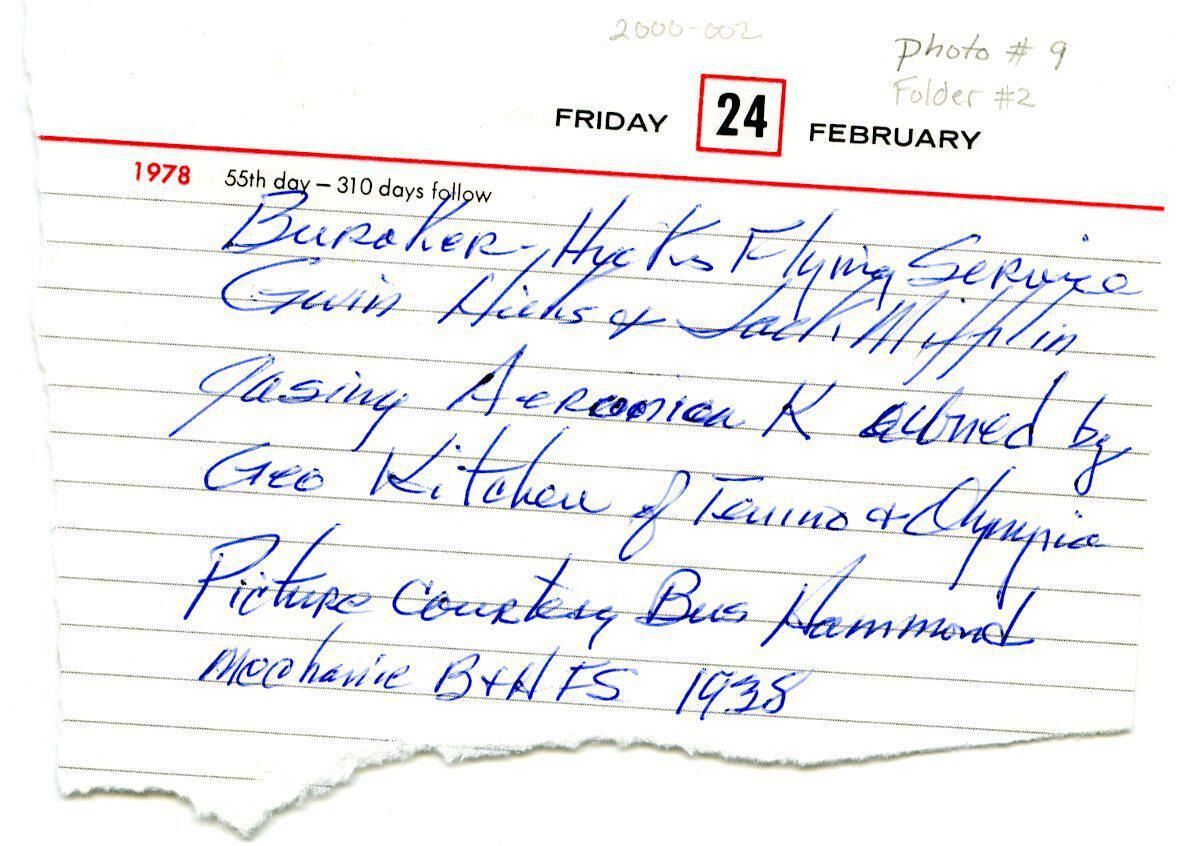 2000-002
photo # 9
Folder #2
FRIDAY 24 FEBRUARY
1978 55th day – 310 days follow
Buroker-Hicks Flying Service
Gwin Hicks & Jack Mifflin
gasing Aeronica K owned by
Geo Kitchen of Tenino & Olympia
Picture Courtesy Bus Hammond
Mechanic B+H FS 1938